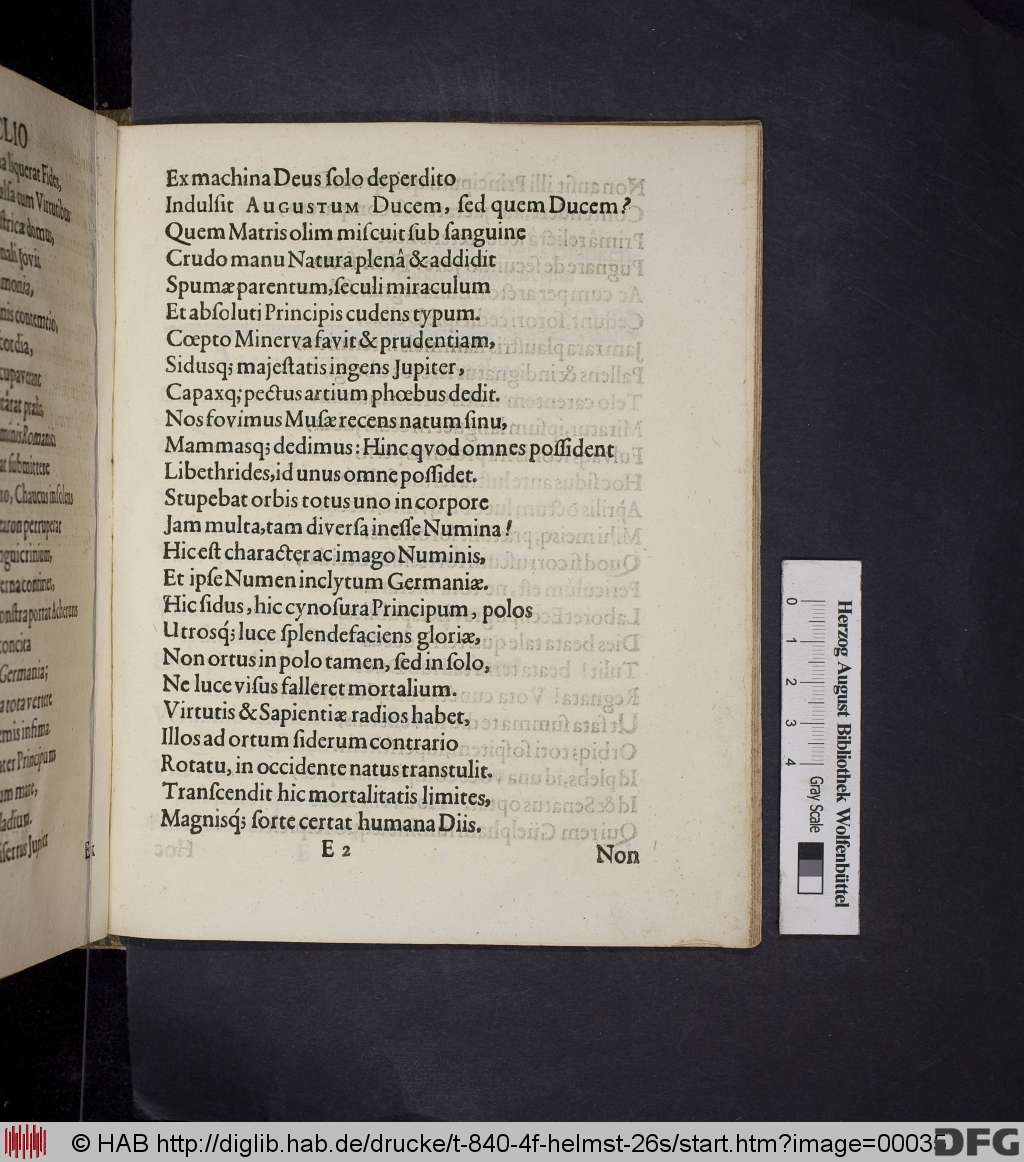 CLIO
liquerat Fides,
cum Virtutibus
domus,
Jovit
contemtio,
Romanis
submittere
Chaucus insolens
perruperat
portat Acherens
concita
Germania;
tota vertite
infima
Principum
mare,
Jupiter
Ex
Ex machina Deus ſolo deperdito
Indulſit AUGUSTUM Ducem, ſed quem Ducem?
Quem Matris olim miſcuit ſub ſanguine
Crudo manu Natura plenâ & addidit
Spumæ parentum, ſeculi miraculum
Et abſoluti Principis cudens typum.
Cœpto Minerva favit & prudentiam,
Sidusq; majeſtatis ingens Jupiter,
Capaxq; pectus artium phœbus dedit.
Nos fovimus Muſæ recens natum ſinu,
Mammasq; dedimus: Hinc qvod omnes poſſident
Libethrides, id unus omne poſſidet.
Stupebat orbis totus uno in corpore
Jam multa, tam diverſa ineſſe Numina!
Hic eſt character ac imago Numinis,
Et ipſe Numen inclytum Germaniæ.
Hic ſidus, hic cynoſura Principum, polos
Utrosq́; luce ſplendefaciens gloriæ,
Non ortus in polo tamen, ſed in ſolo,
Ne luce viſus falleret mortalium.
Virtutis & Sapientiæ radios habet,
Illos ad ortum ſiderum contrario
Rotatu, in occidente natus transtulit.
Tranſcendit hic mortalitatis limites,
Magnisq́; ſorte certat humana Diis.
E 2
Non
0 1 2 3 4
Herzog August Bibliothek Wolfenbüttel
Gray Scale
© HAB http://diglib.hab.de/drucke/t-840-4f-helmst-26s/start.htm?image=00035
DFG